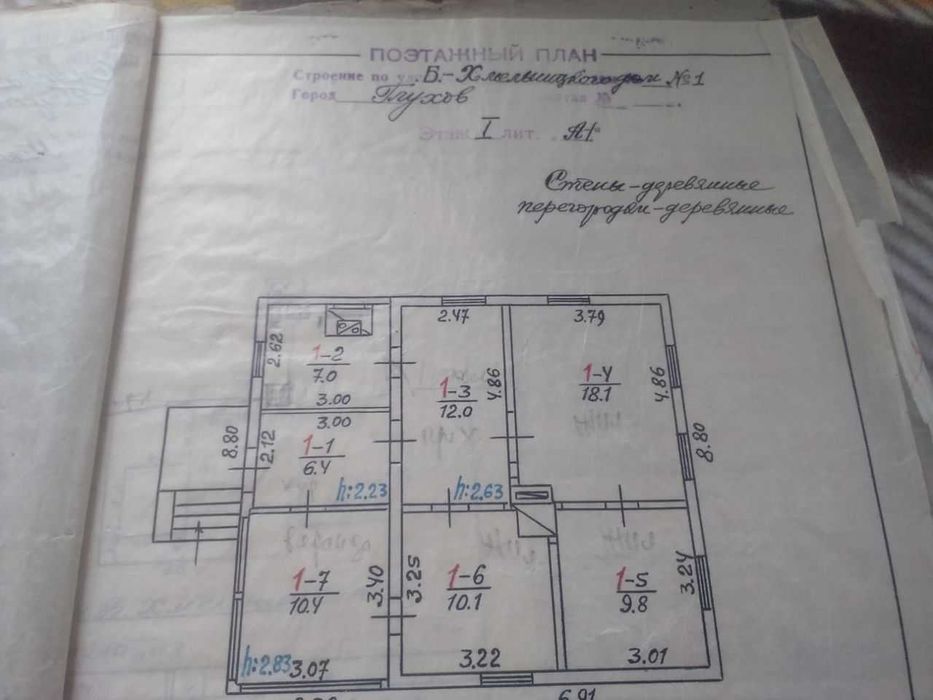 ПОЭТАЖНЫЙ ПЛАН
Строение по ул. Б.-Хмельницкого дом №1
Город Глухов
Этаж I лит. А1
Стены-деревянные
перегородки-деревянные
2.47 3.79
2.62 1-2 7.0 3.00
1-3 12.0 4.86
1-4 18.1 4.86
8.80 2.12 3.00 1-1 6.4 h:2.23
h:2.63
8.80
1-7 10.4 3.40
3.25 1-6 10.1
1-5 9.8 3.24
h:2.83 3.07 3.22 3.01
6.91